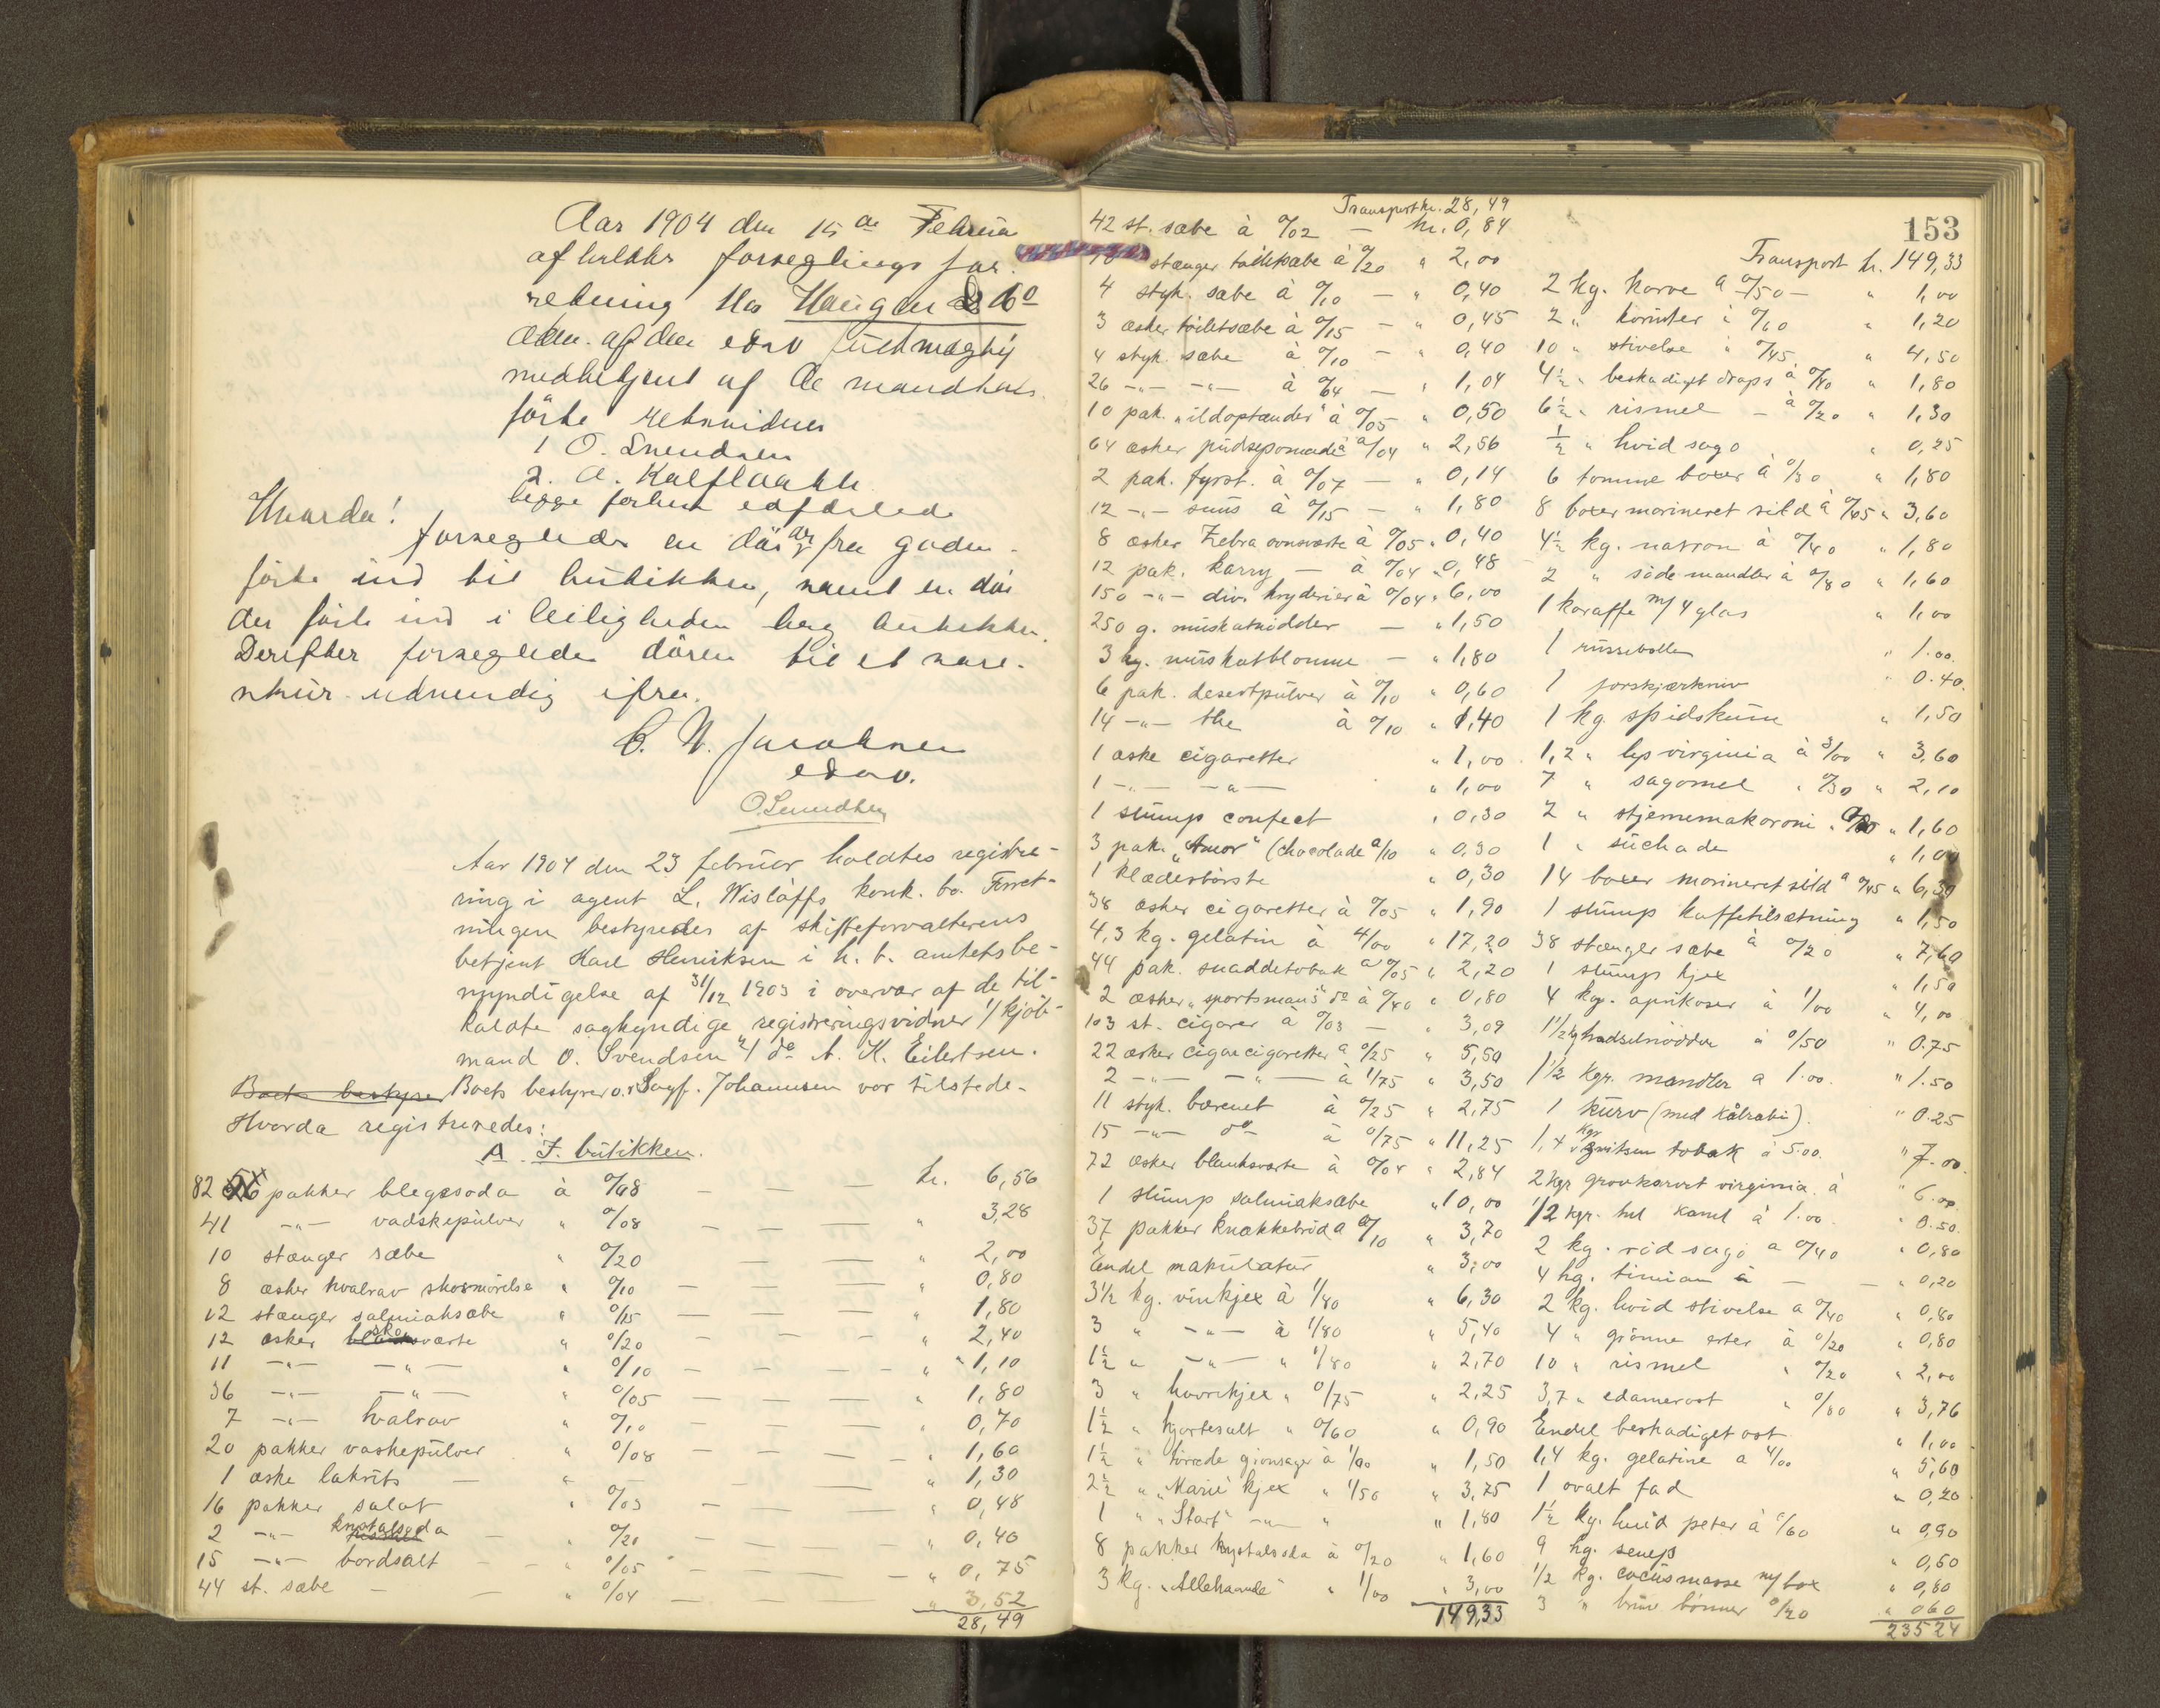 Aar 1904 den 15 de Februa
afholdtes forseglings for
retning hos Haugen & Co
efter af den edsv fuldmægtig
medbetjent af de mandtals
førte retsvidner
1 O. Svendsen
2. A. Kalflaath
begge forhen edfæstede
Hvorda!
forsegledes en dør der fra gaden
førte ind til butikken, samt en dør
der førte ind i leiligheden bag butikken.
Derefter forsegledes døren til et vare-
skur udvendig ifra.
C. N. Jacobsen
edsv.
O Svendsen
Aar 1904 den 23 februar holdtes registre-
ring i agent L. Wisløffs konk. bo. Forret-
ningen bestyredes af skifteforvalterens
betjent Karl Henriksen i h. t. amtets be-
myndigelse af 31/12 1903 i overvær af de til-
kaldte sagkyndige registreringsvidner 1/ kjøb-
mand O. Svendsen 2/ do A. K. Eilertsen.
Boets bestyrer Boets bestyrer o.r.Sagf. Johannesen var tilstede.
Hvorda registreredes:
A. I butikken.
82 pakker blegsoda à 0/08 — — — kr. 6,56
41 -"- vadskepulver " 0/08 — — — " 3,28
10 stænger sæbe " 0/20 — — " 2,00
8 æsker hvalrav skosmørelse " 0/10 — — — " 0,80
12 stænger salmiaksæbe " 0/15 — — — " 1,80
12 æsker skosværte " 0/20 — — — " 2,40
11 -"- -"- " 0/10 — — — " 1,10
36 -"- -"- " 0/05 — — — " 1,80
7 -"- hvalrav " 0/10 — — — " 0,70
20 pakker vaskepulver " 0/08 — — — " 1,60
1 æske lakrits — " — — — " 1,30
16 pakker salat " 0/03 — — — " 0,48
2 -"- krystalsoda — 0/20 — — — " 0,40
15 -"- bordsalt — " 0/05 — — — " 0,75
44 st. sæbe — — " 0/04 — — — " 3,52
28,49
Transport kr. 28,49
42 st. sæbe à 0/02 — kr. 0,84
10 stænger toiletsæbe à 0/20 " 2,00
4 styk. sæbe à 0/10 — " 0,40
3 æsker toiletsæbe à 0/15 — " 0,45
4 styk. sæbe à 0/10 — " 0,40
26 -"- -"- à 0/04 — " 1,04
10 pak. "ildoptænder" à 0/05 " 0,50
64 æsker pudsepomade à 0/04 " 2,56
2 pak. fyrst. à 0/07 — " 0,14
12 -"- snus à 0/15 — " 1,80
8 æsker Zebra ovnsværte à 0/05 " 0,40
12 pak. karry — à 0/04 " 0,48
150 -"- div. kryderier à 0/04 " 6,00
250 g. muskatnødder — " 1,50
3 hg. muskatblomme — " 1,80
6 pak. desertpulver à 0/10 " 0,60
14 -"- the à 0/10 " 1,40
1 æske cigaretter " 1,00
1 -"- -"- " 1,00
1 slump confect " 0,30
3 pak. "Amor" (chocolade 0/10 " 0,30
1 klædesbørste " 0,30
38 æsker cigaretter à 0/05 " 1,90
4,3 kg. gelatin à 4/00 " 17,20
44 pak. snaddetobak à 0/05 " 2,20
2 æsker "sportsmans" do à 0/40 " 0,80
103 st. cigarer à 0/03 — " 3,09
22 æsker cigarcigaretter à 0/25 " 5,50
2 -"- -"- à 1/75 " 3,50
11 styk. børenet à 0/25 " 2,75
15 -"- do à 0/75 " 11,25
72 æsker blanksværte à 0/04 " 2,84
1 slump salmiaksæbe " 10,00
37 pakker knækkebrød à 0/10 " 3,70
Endel makulatur " 3,00
3 1/2 kg. vinkjex à 1/80 " 6,30
3 " -"- à 1/80 " 5,40
1 1/2 " -"- " 1/80 " 2,70
3 " havrekjex " 0/75 " 2,25
1 1/2 " hjortesalt " 0/60 " 0,90
1 1/2 " tørrede grønsager à 1/00 " 1,50
2 1/2 " "Marie" kjex " 1/50 " 3,75
1 " "Start" -"- " " 1,80
8 pakker krystalsoda à 0/20 " 1,60
3 kg. "Allehaande" " 1/00 " 3,00
149,33
153
Transport kr. 149,33
2 kg. karve à 0/50 — " 1,00
2 " korinter à 0/60 " 1,20
10 " stivelse à 0/45 " 4,50
4 1/2 " beskadiget drops à 0/40 " 1,80
6 1/2 " rismel — à 0/20 " 1,30
1/2 " hvid sago " 0,25
6 tomme boxer à 0/30 " 1,80
8 boxer marineret sild à 0/45 " 3,60
4 1/2 kg. natron à 0/40 " 1,80
2 " søde mandler à 0/80 " 1,60
1 karaffe m/ 4 glas " 1,00
1 russebolle " 1.00.
1 forskjærkniv " 0.40.
1 kg. spidskum " 1,50
1,2 " lys virginia à 3/00 " 3,60
7 " sagomel " 0/30 " 2,10
2 " stjernemakaroni " 0/80 " 1,60
1 " suchade " 1,00
14 boxer marineret sild à 0/45 " 6,30
1 slump kaffetilsætning " 1,50
38 stænger sæbe à 0/20 " 7,60
1 slump kjex " 1,50
4 kg. aprikoser à 1/00 " 4,00
1 1/2 kg hasselnødder à 0/50 " 0.75
1 1/2 kgr. mandler à 1.00. " 1.50
1 kurv (med kålrabi). " 0.25
1,4 kgr tobak à 5.00. " 7.00.
2 kgr grovkarvet virginia à " 6.00
1/2 kgr. hel kanel à 1.00. " 0.50.
2 kg. rød sago à 0/40 " 0,80
4 hg. timian à — — " 0,20
2 kg. hvid stivelse à 0/40 " 0,80
4 " grønne erter à 0/20 " 0,80
10 " rismel " 0/20 " 2,00
3,7 " edamerost " 0/80 " 3,76
Endel beskadiget ost " 1,00
1,4 kg. gelatine à 4/00 " 5,60
1 ovalt fad " 0,20
1 1/2 kg. hvid peber à 0/60 " 0,90
9 hg. senep " 0,50
1/2 kg. cocusmasse m/ box " 0,80
3 " brune bønner 0/20 " 0 60
235 24